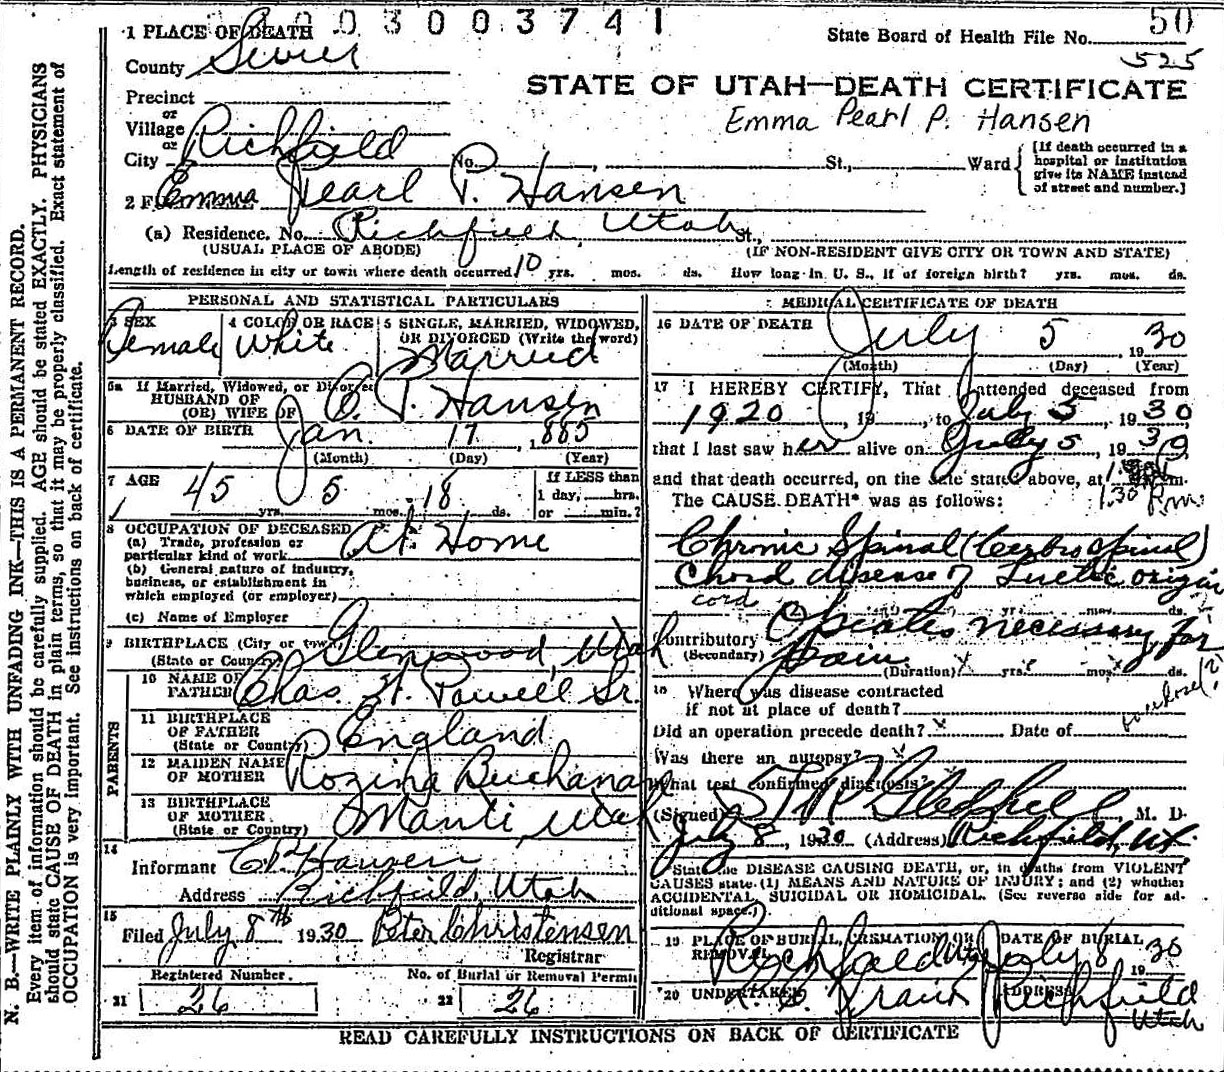 003003741
50
1 PLACE OF DEATH
State Board of Health File No.
525
County Sevier
STATE OF UTAH—DEATH CERTIFICATE
Precinct
Emma Pearl P. Hansen
or
Village
or
City Richfield No. , St., Ward
[If death occurred in a hospital or institution give its NAME instead of street and number.]
2 F Emma Pearl P. Hansen
(a) Residence. No. Richfield, Utah St.,
(USUAL PLACE OF ABODE) (IF NON-RESIDENT GIVE CITY OR TOWN AND STATE)
Length of residence in city or town where death occurred 10 yrs. mos. ds. How long in U. S., if of foreign birth? yrs. mos. ds.
PERSONAL AND STATISTICAL PARTICULARS
3 SEX
Female
4 COLOR OR RACE
White
5 SINGLE, MARRIED, WIDOWED,
OR DIVORCED (Write the word)
Married
5a If Married, Widowed, or Divorced
HUSBAND OF
(OR) WIFE OF C. P. Hansen
6 DATE OF BIRTH Jan. 17, 1885
(Month) (Day) (Year)
7 AGE 45 yrs. 5 mos. 18 ds.
If LESS than
1 day, hrs.
or min.?
8 OCCUPATION OF DECEASED
(a) Trade, profession or
particular kind of work At Home
(b) General nature of industry,
business, or establishment in
which employed (or employer)
(c) Name of Employer
9 BIRTHPLACE (City or town) Glenwood, Utah
(State or Country)
PARENTS
10 NAME OF
FATHER Chas. W. Powell Sr.
11 BIRTHPLACE
OF FATHER England
(State or Country)
12 MAIDEN NAME
OF MOTHER Rozina Buchanan
13 BIRTHPLACE
OF MOTHER Manti, Utah
(State or Country)
14
Informant C. P. Hansen
Address Richfield, Utah
15
Filed July 8th 1930 Peter Christensen
Registrar
Registered Number. No. of Burial or Removal Permit
21 26 22 26
MEDICAL CERTIFICATE OF DEATH
16 DATE OF DEATH
July 5, 1930
(Month) (Day) (Year)
17 I HEREBY CERTIFY, That I attended deceased from
1920, 19, to July 5, 1930,
that I last saw her alive on July 5, 1930,
and that death occurred, on the date stated above, at m.
1.30 P.m.
The CAUSE DEATH* was as follows:
Chronic Spinal (Cerebro spinal)
Chord disease of Luetic origin
cord yrs. mos. ds.
Contributory Opiates necessary for
(Secondary) pain
(Duration) yrs. mos. ds.
18 Where was disease contracted
if not at place of death?
Did an operation precede death? x Date of
Was there an autopsy? x
What test confirmed diagnosis?
(Signed) M. D.
July 8, 1930 (Address) Richfield, Ut.
*State the DISEASE CAUSING DEATH, or, in deaths from VIOLENT
CAUSES state (1) MEANS AND NATURE OF INJURY; and (2) whether
ACCIDENTAL, SUICIDAL OR HOMICIDAL. (See reverse side for ad-
ditional space.)
19 PLACE OF BURIAL, CREMATION OR
REMOVAL Richfield Utah
DATE OF BURIAL
July 8 1930
20 UNDERTAKER
ADDRESS
Richfield
Utah
READ CAREFULLY INSTRUCTIONS ON BACK OF CERTIFICATE
N. B.—WRITE PLAINLY WITH UNFADING INK—THIS IS A PERMANENT RECORD.
Every item of information should be carefully supplied. AGE should be stated EXACTLY. PHYSICIANS
should state CAUSE OF DEATH in plain terms, so that it may be properly classified. Exact statement of
OCCUPATION is very important. See instructions on back of certificate.